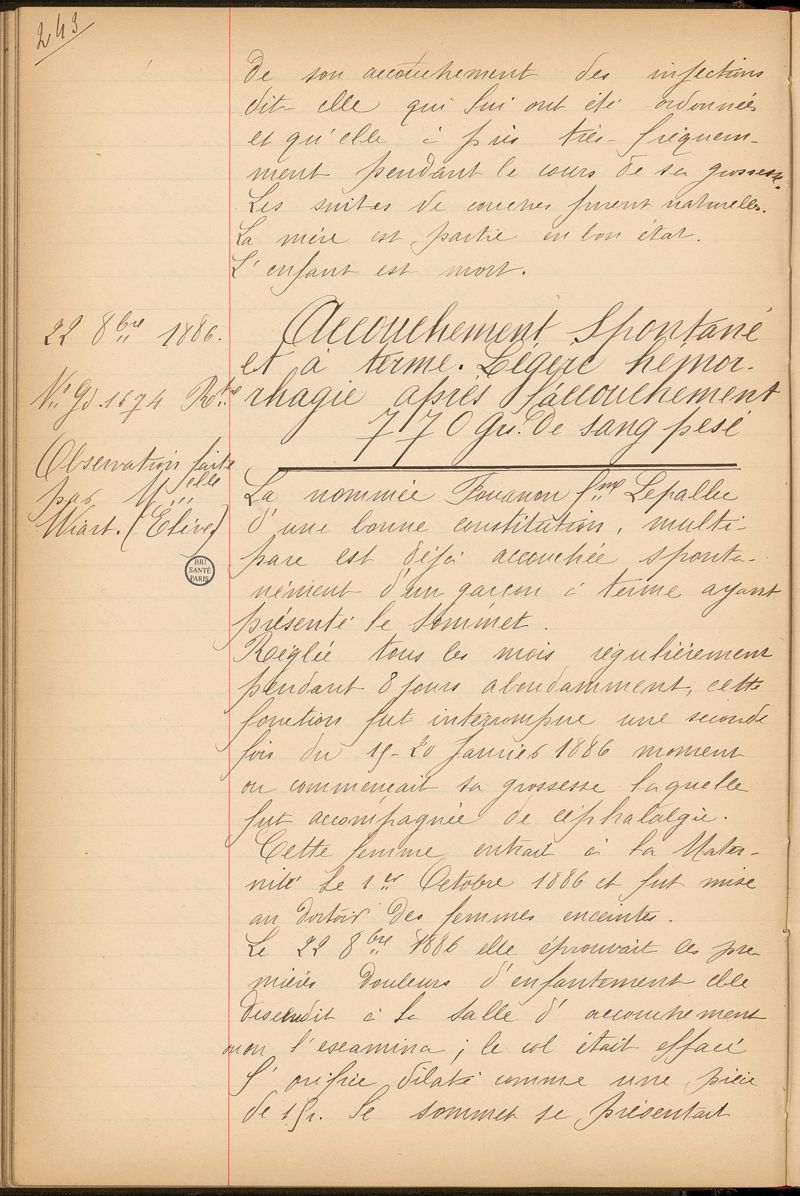 243
de son accouchement des infections
dit elle qui lui ont été ordonnées
et qu'elle à pris très-fréquem-
ment pendant le cours de sa grossesse.
Les suites de couches furent naturelles.
La mère est partie en bon état.
L'enfant est mort.
22 8bre 1886.
No Gd. 1674 Rtre
Observation faite
par Melle
Wiart. (Elève)
BIU
SANTÉ
PARIS
Accouchement Spontané
et à terme. Légère hémor-
rhagie après l'accouchement
770 Gr. de sang pesé
La nommée Fouanon fme Lepallec
d'une bonne constitution, multi-
pare est déjà accouchée sponta-
nément d'un garçon à terme ayant
présenté le sommet.
Réglée tous les mois régulièrement
pendant 8 jours abondamment, cette
fonction fut interrompue une seconde
fois du 15-20 Janvier 1886 moment
ou commençait sa grossesse laquelle
fut accompagnée de céphalalgie.
Cette femme entrait à la Mater-
nité le 1er Octobre 1886 et fut mise
au dortoir des femmes enceintes.
Le 22 8bre 1886 elle éprouvait les pre-
mières douleurs d'enfantement elle
descendit à la salle d'accouchement
ou on l'examina; le col était effacé
l'orifice dilaté comme une pièce
de 1fr. le sommet se présentait